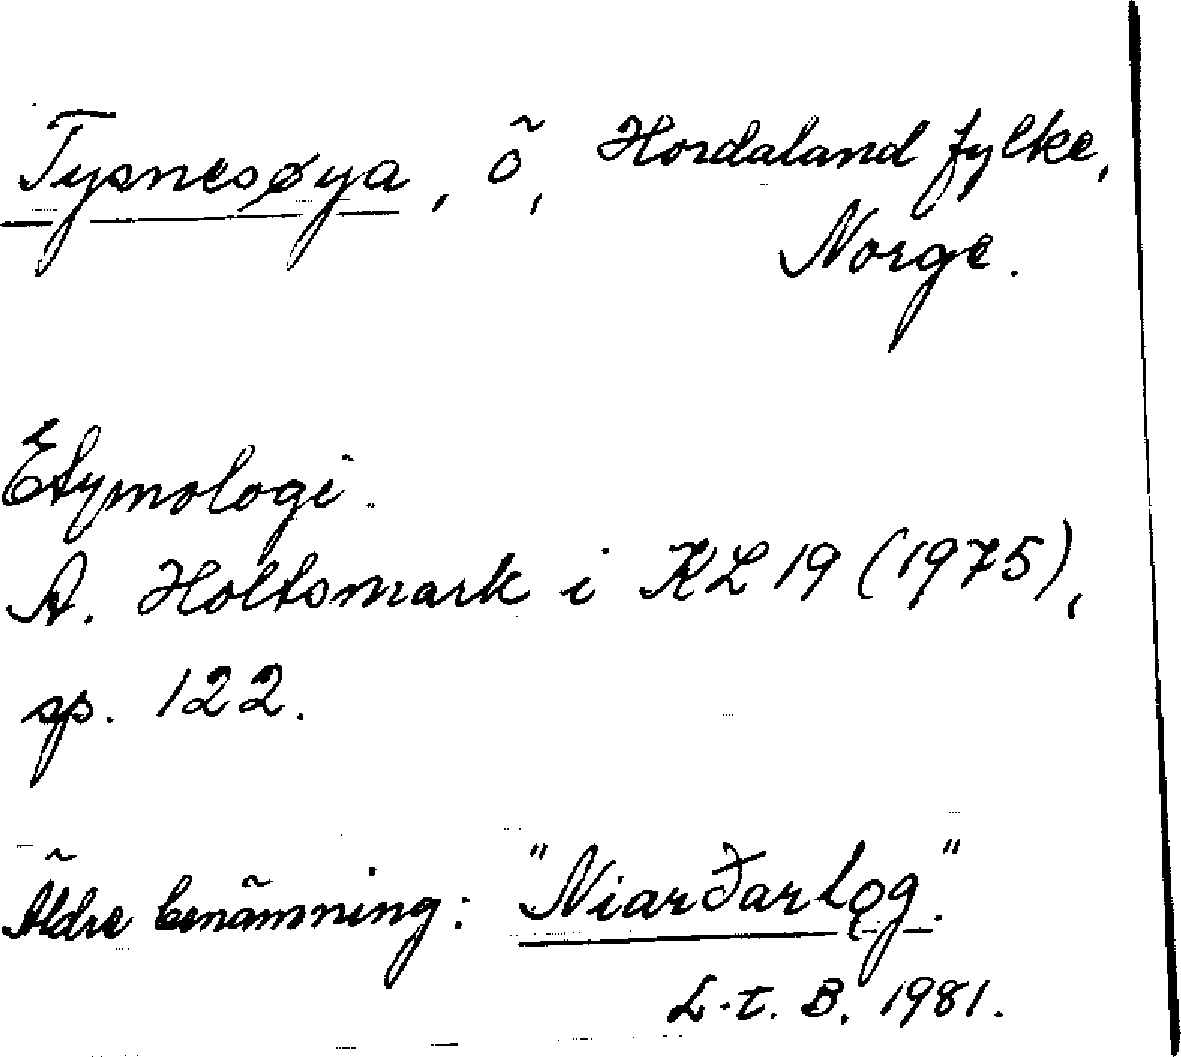 Tysnesøya, ö, Hordaland fylke,
Norge.
Etymologi.
A. Holtsmark i KL 19 (1975),
sp. 122.
Äldre benämning: "Niarðarlǫg."
L-t. B. 1981.